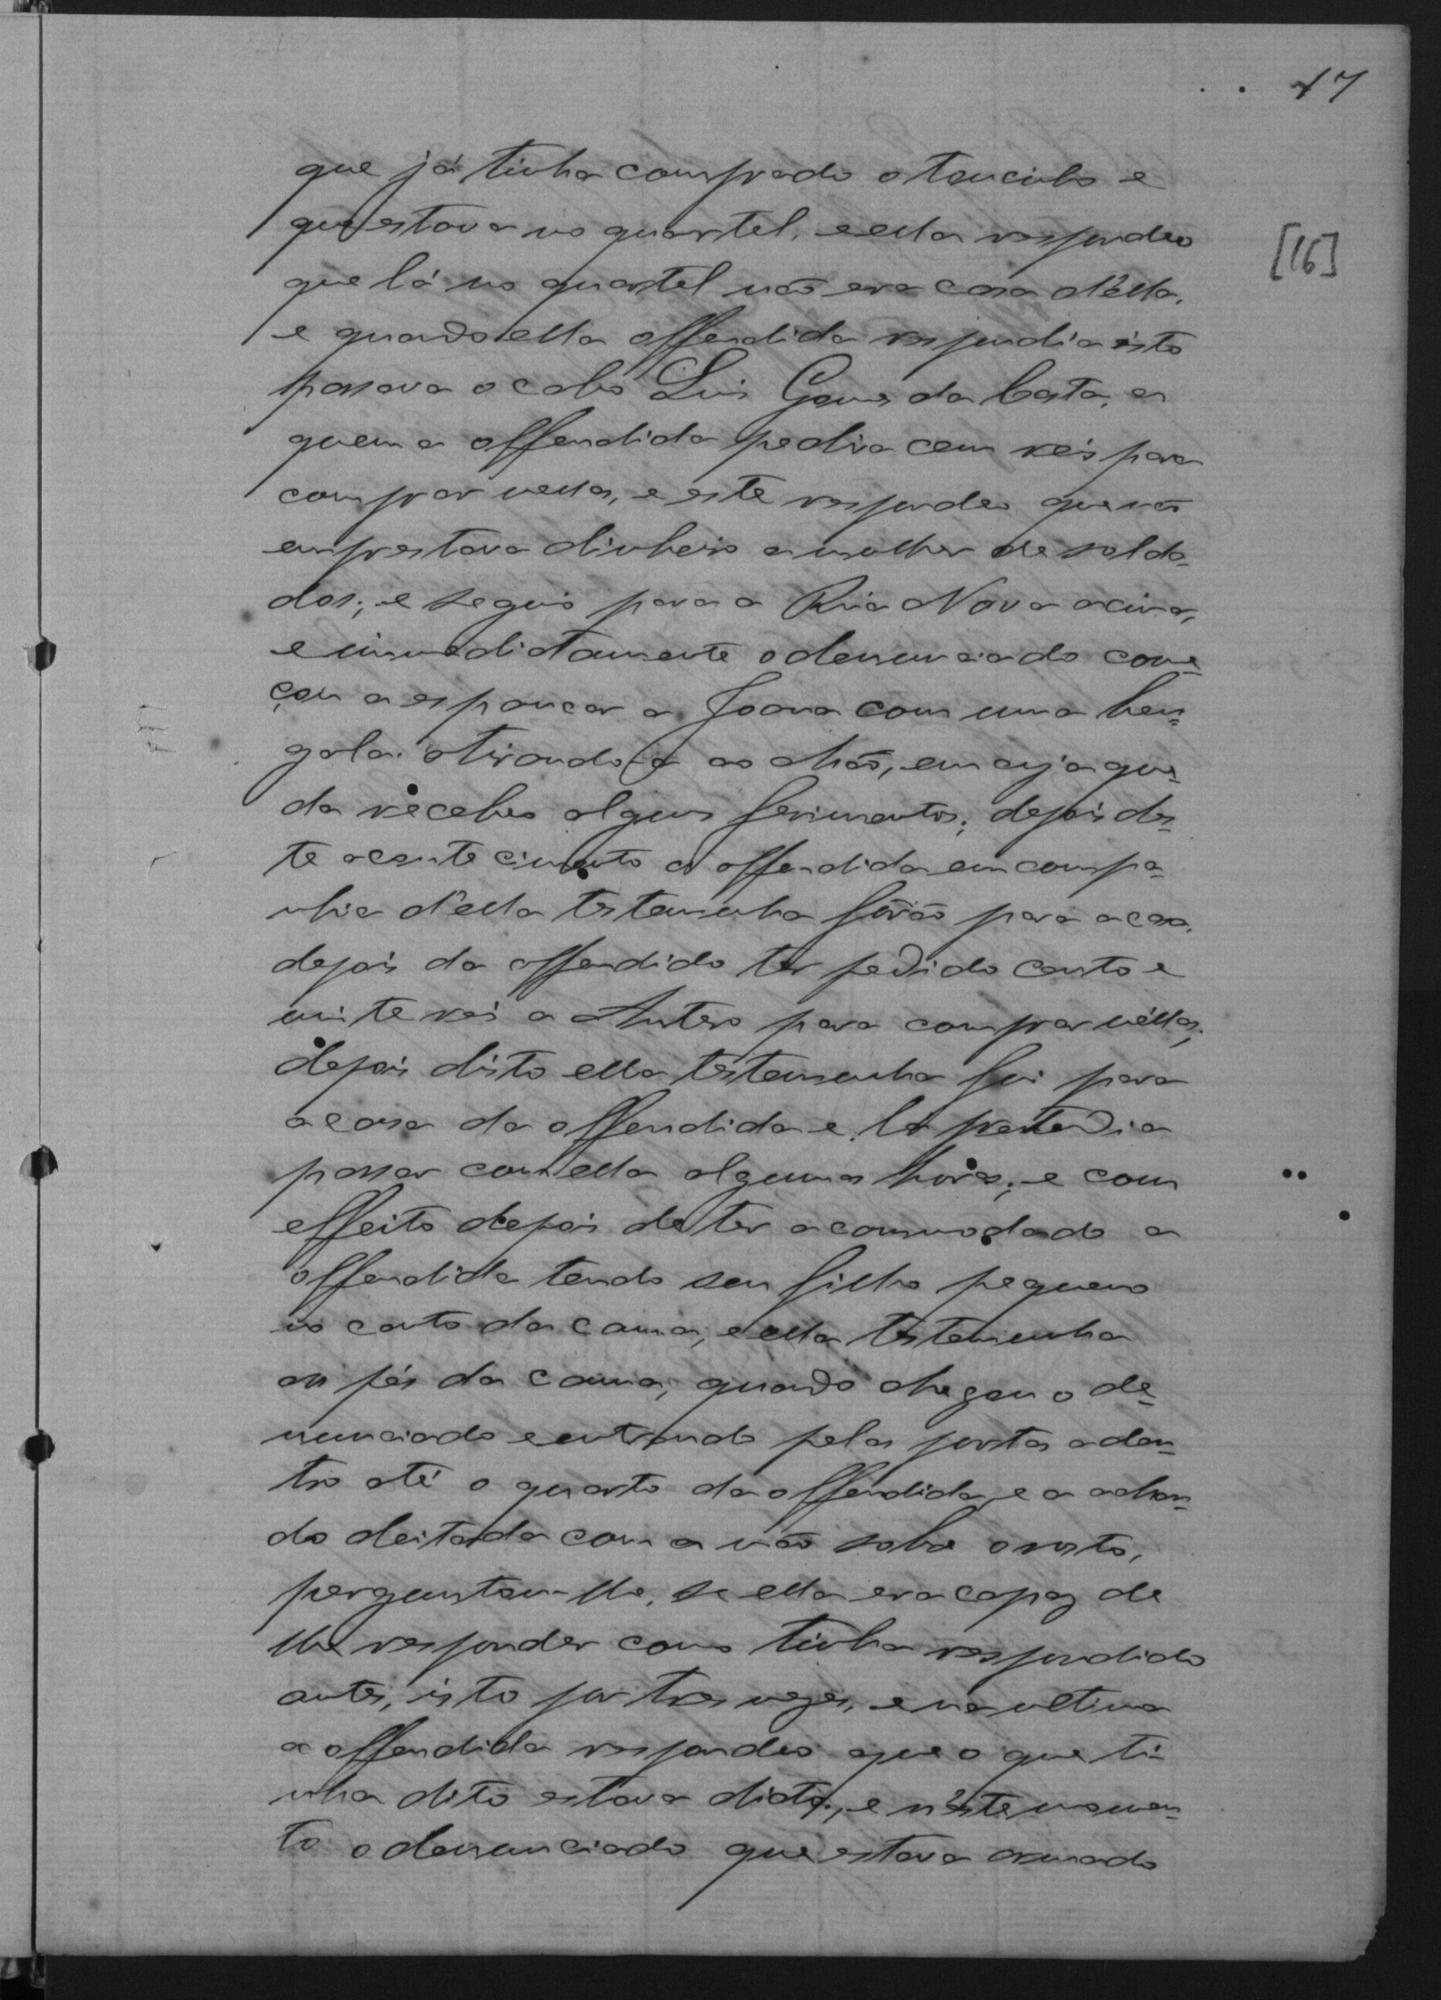 17
[16]
que já tinha comprado o toucinho e
que estava no quartel, e ella respondeo
que lá no quartel não era casa d'ella,
e quando ella offendida respondia isto
passava o cabo Luis Gomes da Costa, a
quem a offendida pedio cem reis para
comprar vellas, e este respondeo que não
emprestava dinheiro a mulher de solda-
dos; e seguio para a Rua Nova acima,
e immediatamente o denunciado come-
çou a espancar a Joana com uma ben-
gala, atirando-a ao chão, em cuja que-
da recebeo alguns ferimentos; depois des-
te acontecimento a offendida em compa-
nhia d'ella testemunha forão para a casa,
depois da offendida ter pedido cento e
vinte reis a Antero para comprar vellas;
depois disto ella testemunha foi para
a casa da offendida e lá pretendia
passar com ella algumas horas; e com
effeito depois de ter acommodado a
offendida tendo seu filho pequeno
no canto da cama, e ella testemunha
os pés da cama, quando chegou o de-
nunciado e entrando pelas portas aden-
tro até o quarto da offendida, e a achan-
do deitada com a mão sobre o rosto,
perguntou-lhe, se ella era capaz de
lhe responder como tinha respondido
antes, isto por tres vezes, e na ultima
a offendida respondeo que o que ti-
nha dito estava dito, e n'este momen-
to o denunciado que estava armado